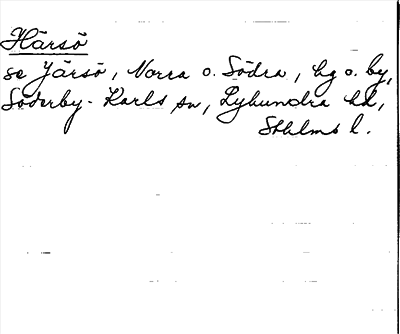 Härsö
se Järsö, Norra o. Södra, hg o. by,
Söderby-Karls sn, Lyhundra hd,
Sthlms l.